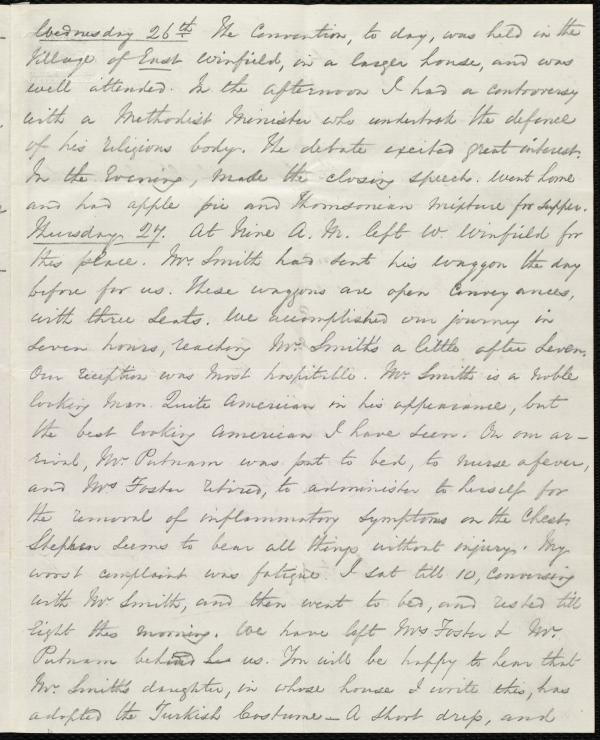 Wednesday 26th The Convention, to day, was held in the
Village of East Winfield, in a larger house, and was
well attended. In the afternoon I had a controversy
with a Methodist Minister who undertook the defence
of his religious body. The debate excited great interest.
In the Evening, made the closing speech. Went home
and had apple pie and Thomsonian mixture for supper.
Thursday 27. At Nine A. M. left W. Winfield for
this place. Mr. Smith had sent his waggon the day
before for us. These waggons are open Conveyances,
with three Seats. We accomplished our journey in
Seven hours, reaching Mr. Smith's a little after Seven.
Our reception was most hospitable. Mr. Smith is a noble
looking man. Quite American in his appearance, but
the best looking American I have seen. On our ar-
rival, Mr. Putnam was put to bed, to nurse a fever,
and Mrs Foster retired, to administer to herself for
the removal of inflammatory Symptoms on the Chest.
Stephen seems to bear all things without injury. My
worst complaint was fatigue. I sat till 10, Conversing
with Mr. Smith, and then went to bed, and rested till
Eight this morning. We have left Mrs Foster & Mr.
Putnam behind us. You will be happy to hear that
Mr. Smith's daughter, in whose house I write this, has
adopted the Turkish Costume — A short dress, and